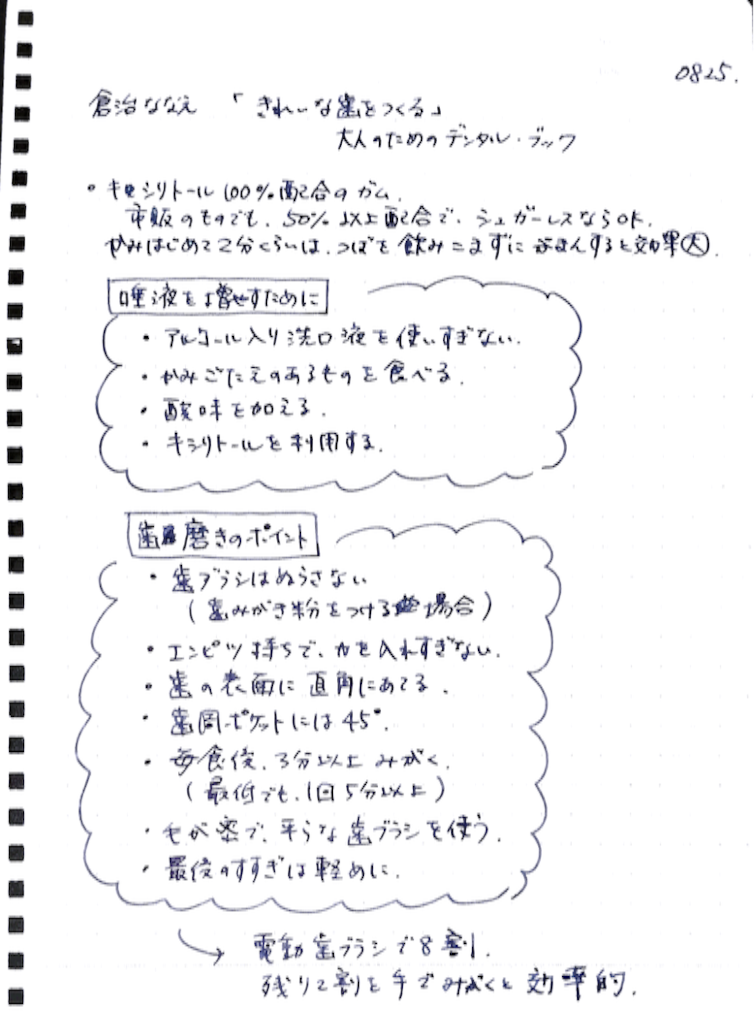 0825.
倉治ななえ 「きれいな歯をつくる」
大人のためのデンタル・ブック
・キシリトール100%配合のガム.
市販のものでも、50%以上配合で、シュガーレスならOK.
かみはじめて2分くらいは、つばを飲みこまずにがまんすると効果大.
唾液を増やすために
・アルコール入り洗口液を使いすぎない.
・かみごたえのあるものを食べる.
・酸味を加える.
・キシリトールを利用する.
歯磨きのポイント
・歯ブラシはぬらさない
(歯みがき粉をつける場合)
・エンピツ持ちで、力を入れすぎない.
・歯の表面に直角にあてる.
・歯周ポケットには45°.
・毎食後、3分以上みがく.
(最低でも、1回5分以上)
・毛が密で、平らな歯ブラシを使う.
・最後のすすぎは軽めに.
→ 電動歯ブラシで8割.
残り2割を手でみがくと効率的.